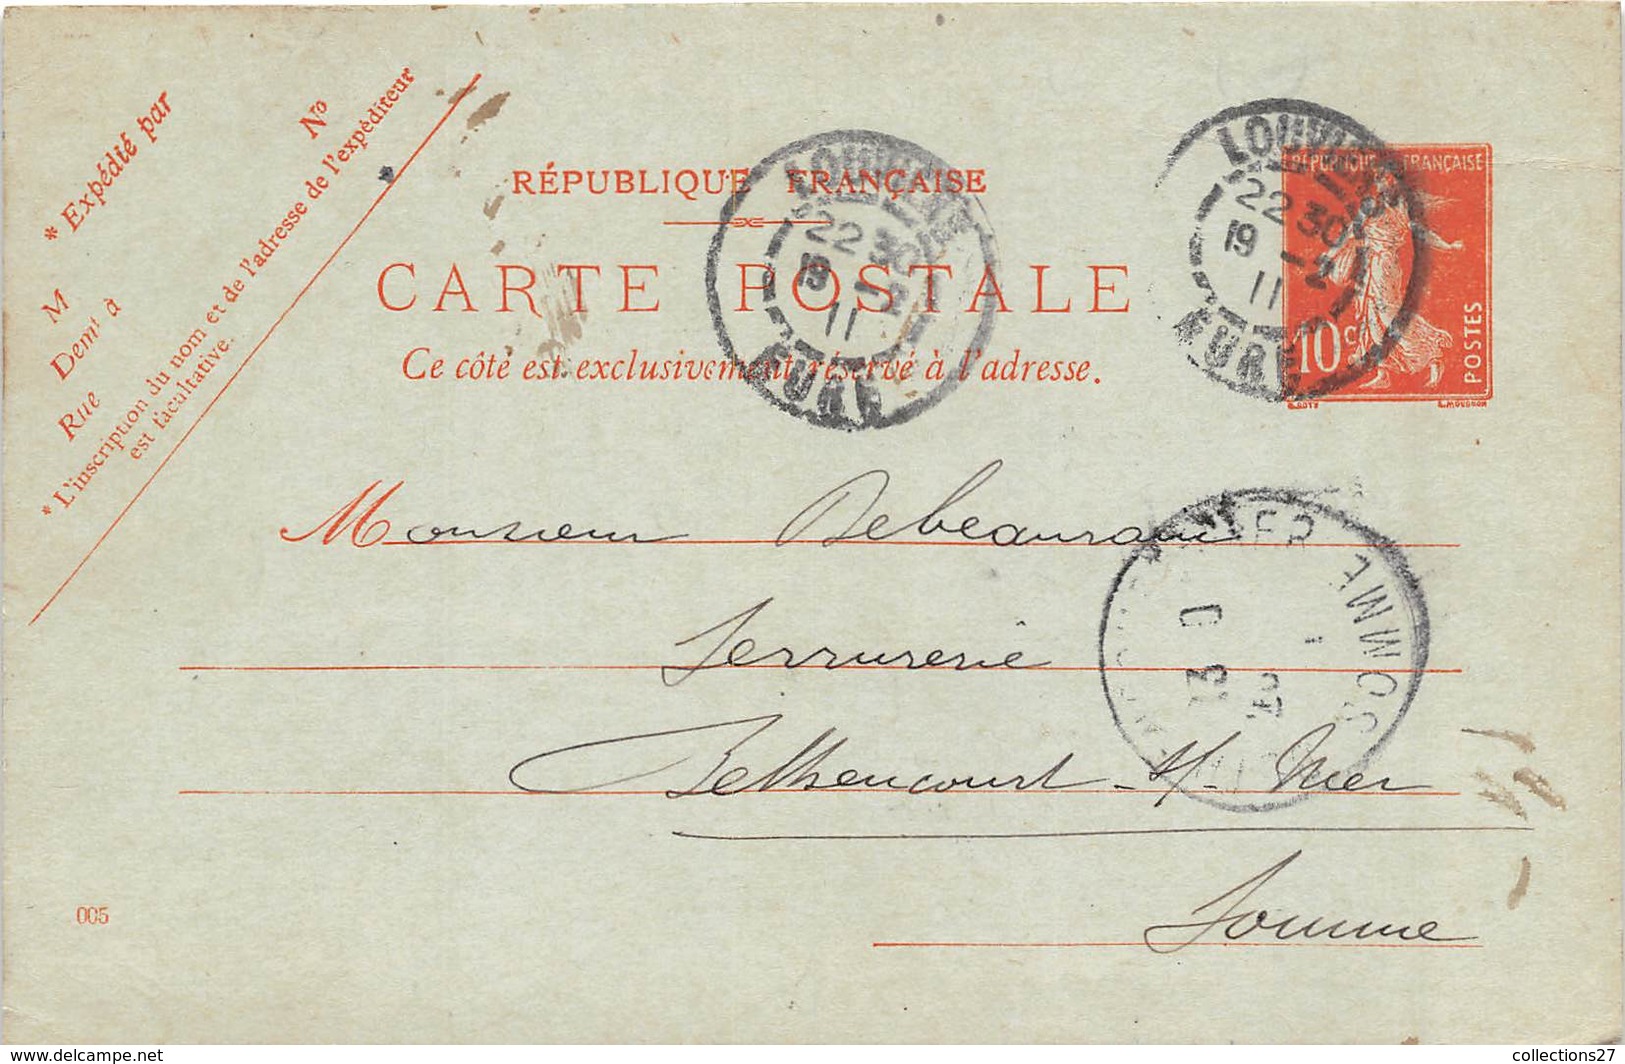 * Expédié par
M
Demt à
Rue
No
* L'inscription du nom et de l'adresse de l'expéditeur
est facultative.
RÉPUBLIQUE FRANÇAISE
CARTE POSTALE
Ce côté est exclusivement réservé à l'adresse.
LOUVIERS
22 30
19 -2
11
EURE
LOUVIERS
22 30
19 -2
11
EURE
RÉPUBLIQUE FRANÇAISE
10 c.
POSTES
E. MOUCHON
Monsieur Debeaurain
Serrurerie
Bethencourt - s/- Mer
Somme
SOMME
005
www.delcampe.net
collections27